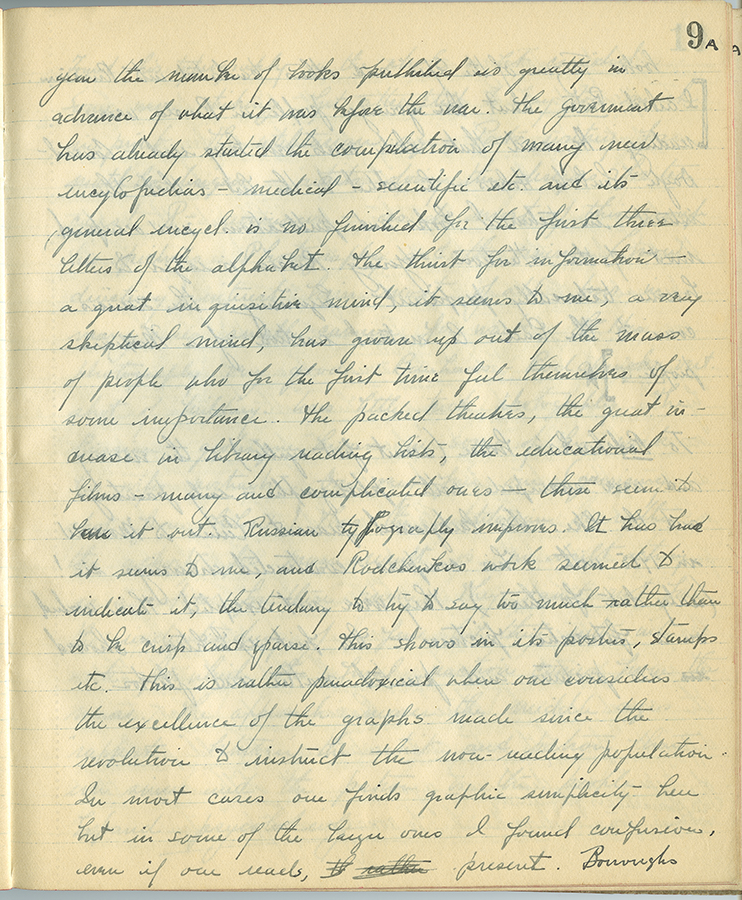 9A
year the number of books published is greatly in
advance of what it was before the war. The Goverment
has already started the compilation of many new
encylopedias – medical – scientific etc. and its
general encycl. is no finished for the first three
letters of the alphabet. The thirst for information –
a great inquisitive mind, it seems to me, a very
skeptical mind, has grown up out of the mass
of people who for the first time feel themselves of
some importance. The packed theatres, the great in-
crease in library reading lists, the educational
films – many and complicated ones – these seem to
bear it out. Russian typography improves. It has had
it seems to me, and Rodchenkos work seemed to
indicate it, the tendency to try to say too much rather than
to be crisp and sparse. This shows in its posters, stamps
etc. This is rather paradoxical when one considers
the excellence of the graphs made since the
revolution to instruct the non-reading population.
In most cases one finds graphic simplicity here
but in some of the large ones I found confusion,
even if one reads, to rather present. Borroughs